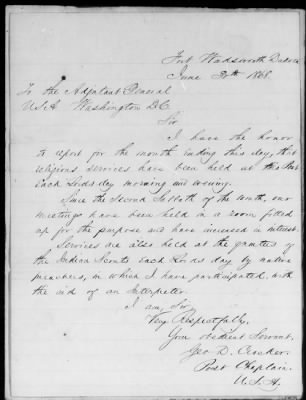 Fort Wadsworth Dakota
June 30th 1868.
To the Adjutant General
U.S.A. Washington D.C.
Sir
I have the honor
to report for the month ending this day, that
religious services have been held at this Post
Each Lords day morning and evening.
Since the Second Sabbath of the month, our
meetings have been held in a room fitted
up for the purpose and have increased in interest.
Services are also held at the quarters of
the Indian Scouts Each Lords day by native
preachers, in which I have participated with
the aid of an Interpreter.
I am, Sir,
Very Respectfully,
Your obedient Servant,
Geo D. Crocker.
Post Chaplain.
U.S.A.